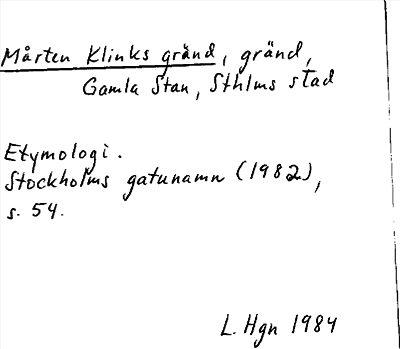 Mårten Klinks gränd, gränd,
Gamla Stan, Sthlms stad
Etymologi.
Stockholms gatunamn (1982),
s. 54.
L. Hgn 1984